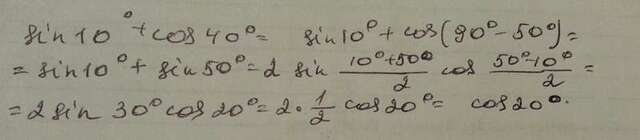 sin 10° + cos 40° = sin 10° + cos(90° - 50°) =
= sin 10° + sin 50° = 2 sin (10° + 50°)/2 cos (50° - 10°)/2 =
= 2 sin 30° cos 20° = 2 · 1/2 cos 20° = cos 20°.